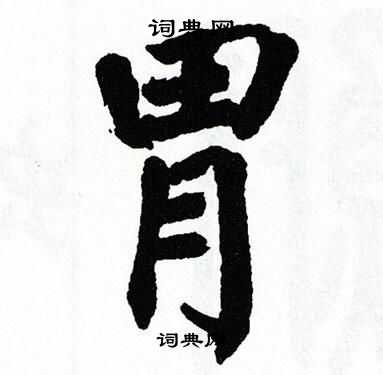 词典网
胃
词典网